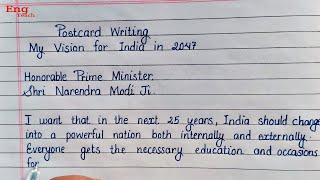 Eng
Teach
Postcard Writing
My Vision for India in 2047
Honorable Prime Minister
Shri Narendra Modi Ji.
I want that in the next 25 years, India should change
into a powerful nation both internally and externally.
Everyone gets the necessary education and occasions
for